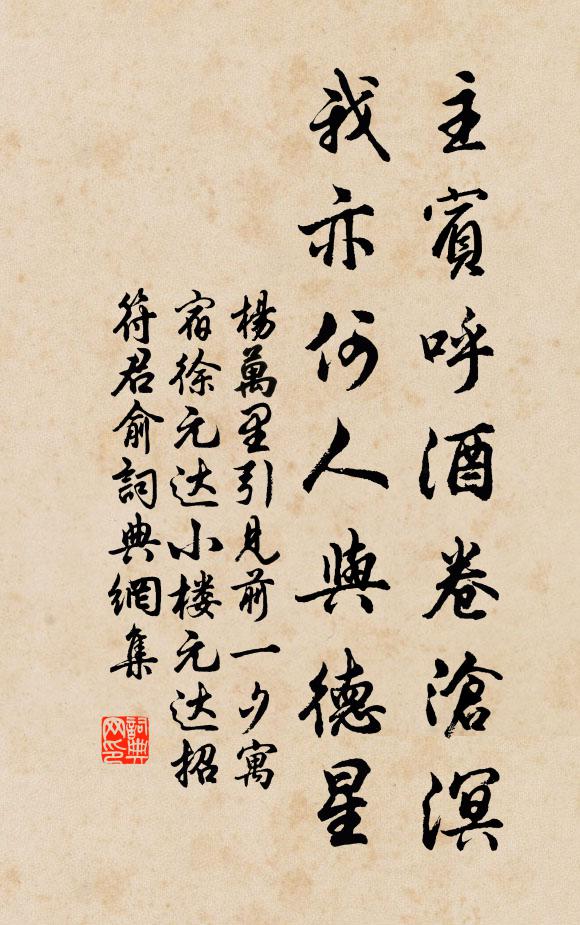 主賓呼酒卷滄溟
我亦何人與德星
楊萬里引見前一夕寓
宿徐元达小楼元达招
符君俞詞典網集
詞典
网印